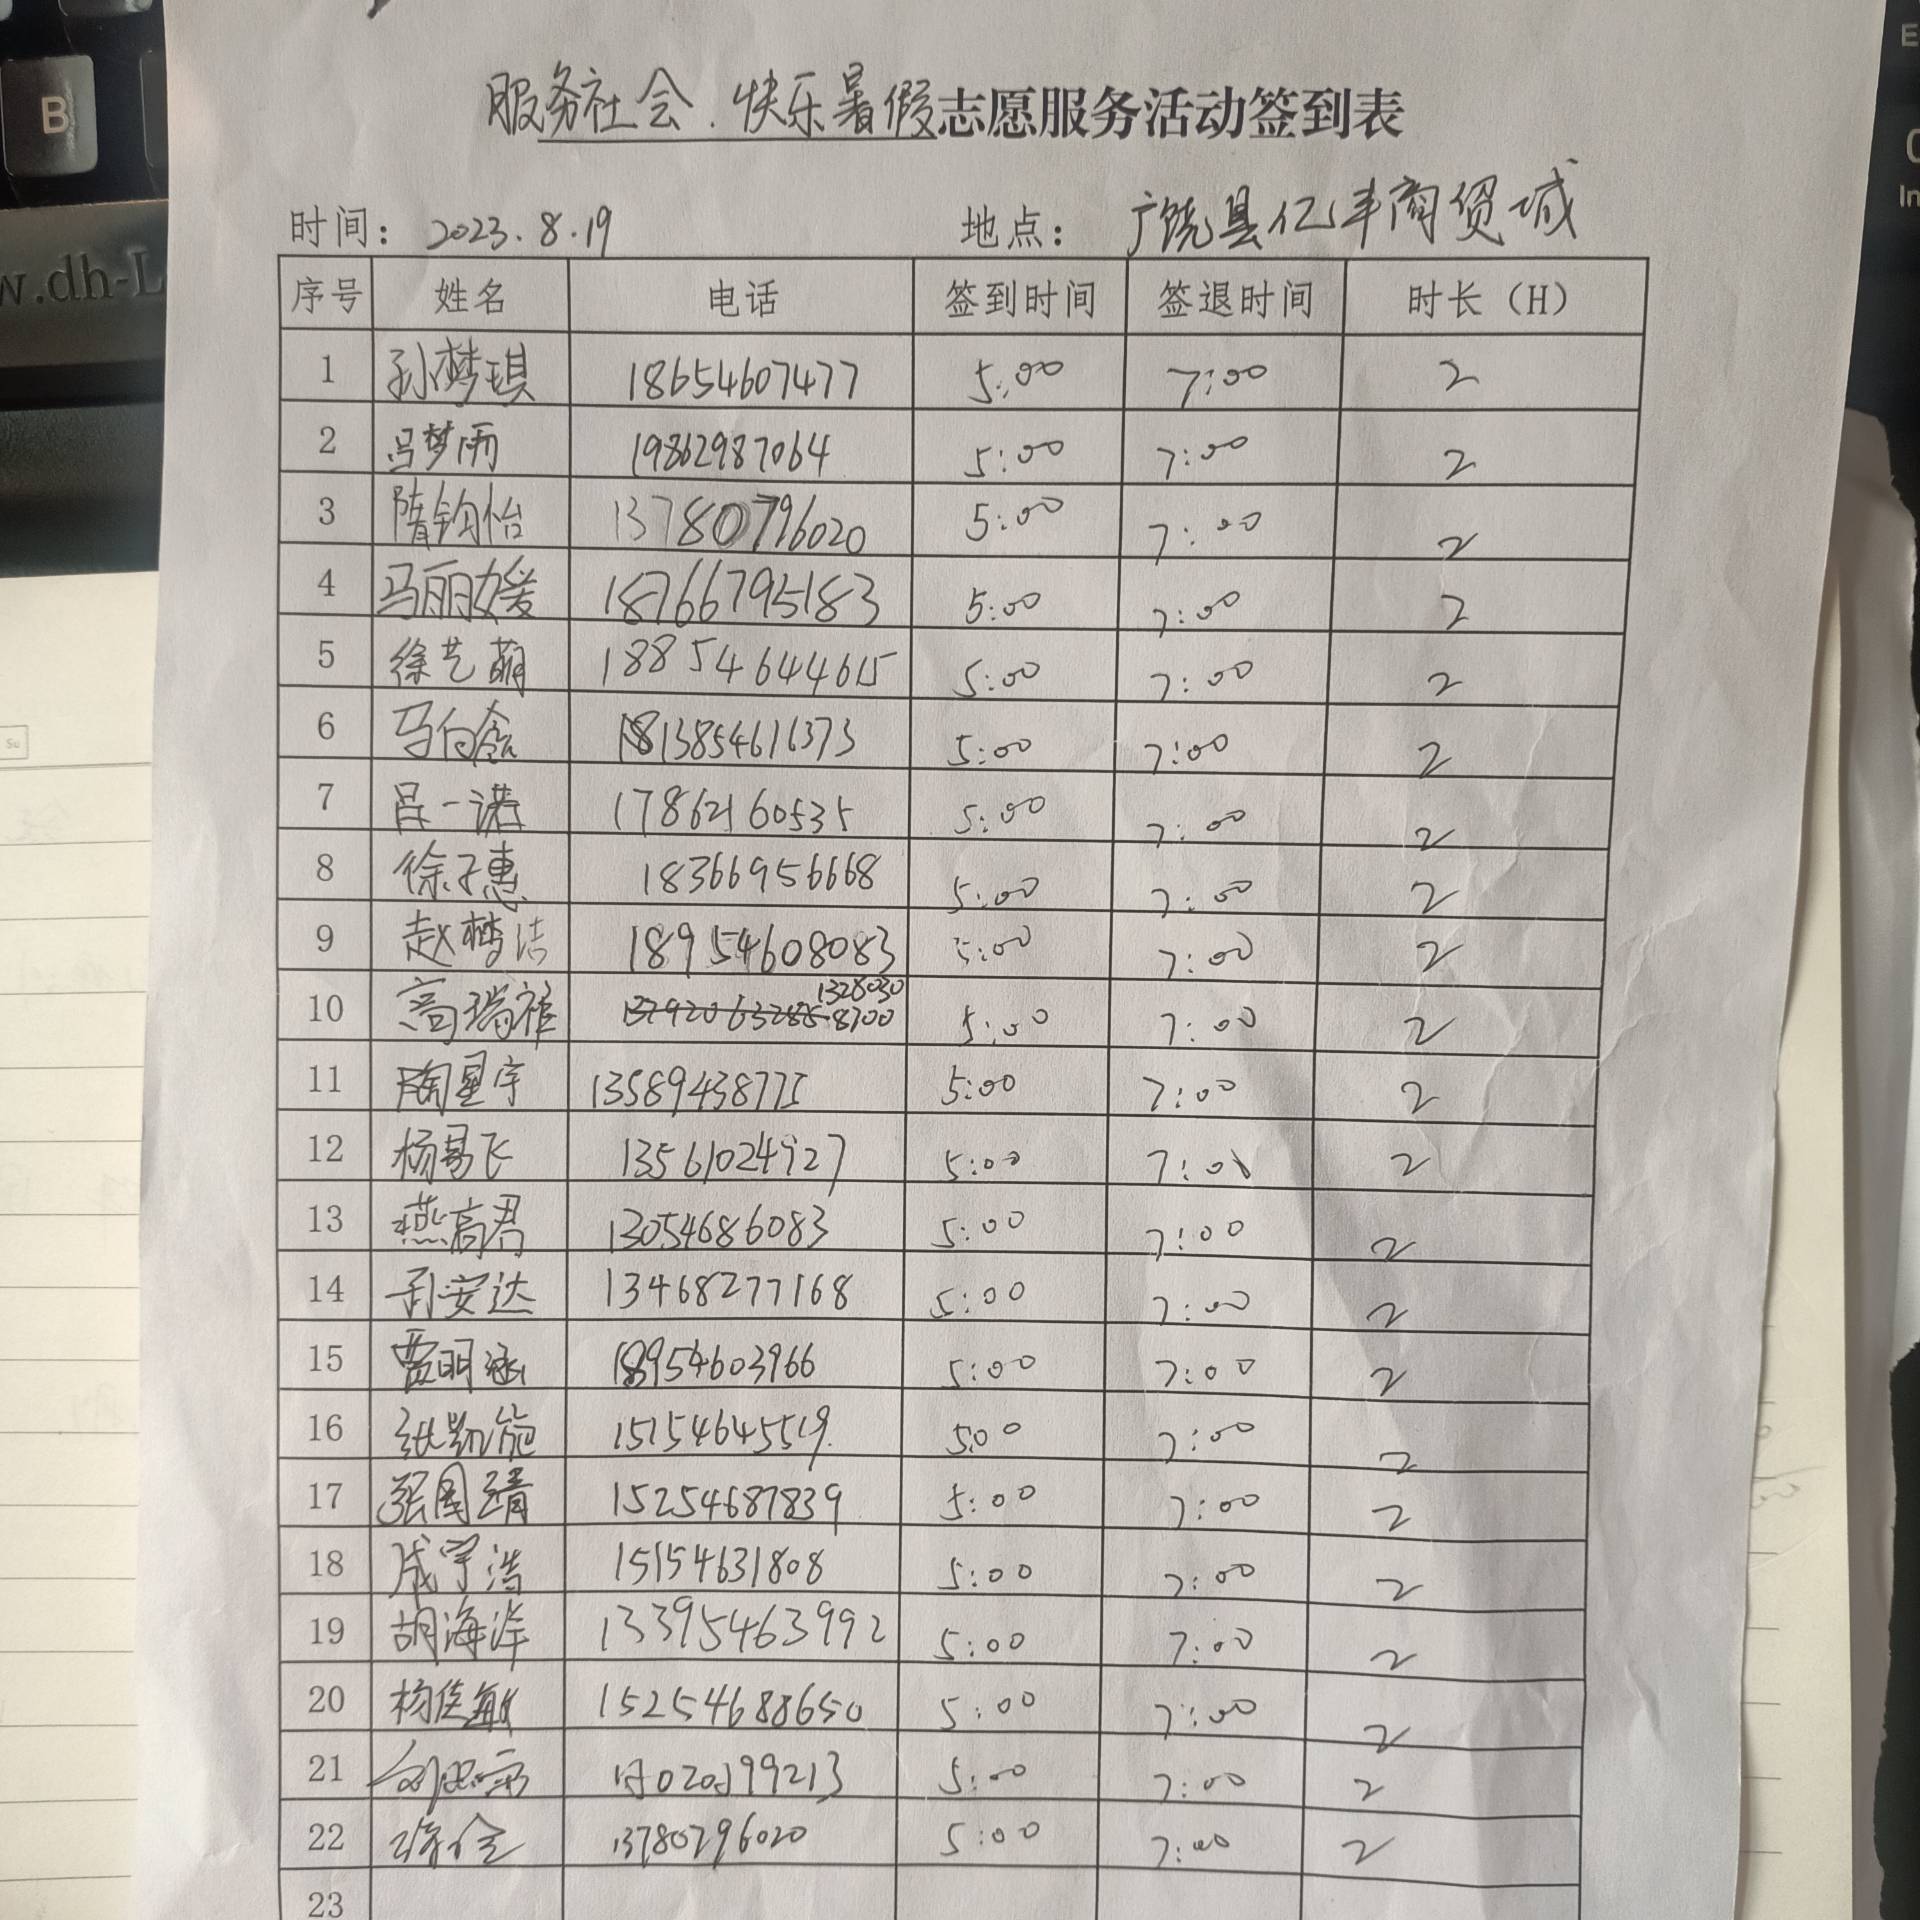 服务社会.快乐暑假志愿服务活动签到表
时间: 2023.8.19 地点: 广饶县亿丰商贸城
序号 姓名 电话 签到时间 签退时间 时长（H）
1 孙梦琪 18654607477 5:00 7:00 2
2 吕梦雨 19862987064 5:00 7:00 2
3 隋钧怡 13780796020 5:00 7:00 2
4 马丽媛 18766795183 5:00 7:00 2
5 徐艺萌 18854644615 5:00 7:00 2
6 13854616373 5:00 7:00 2
7 吕一诺 17862160535 5:00 7:00 2
8 徐子惠 18366956668 5:00 7:00 2
9 赵梦洁 18954608083 5:00 7:00 2
10 高瑞 13280308700 5:00 7:00 2
11 陶星宇 13589438775 5:00 7:00 2
12 杨易飞 13561024927 5:00 7:00 2
13 燕高君 13054686083 5:00 7:00 2
14 孙安达 13468277168 5:00 7:00 2
15 贾明涵 18954603966 5:00 7:00 2
16 15154645519 5:00 7:00 2
17 15254687839 5:00 7:00 2
18 成宇浩 15154631808 5:00 7:00 2
19 胡海洋 13395463992 5:00 7:00 2
20 15254688650 5:00 7:00 2
21 5:00 7:00 2
22 13780796020 5:00 7:00 2
23
B
w.dh-L